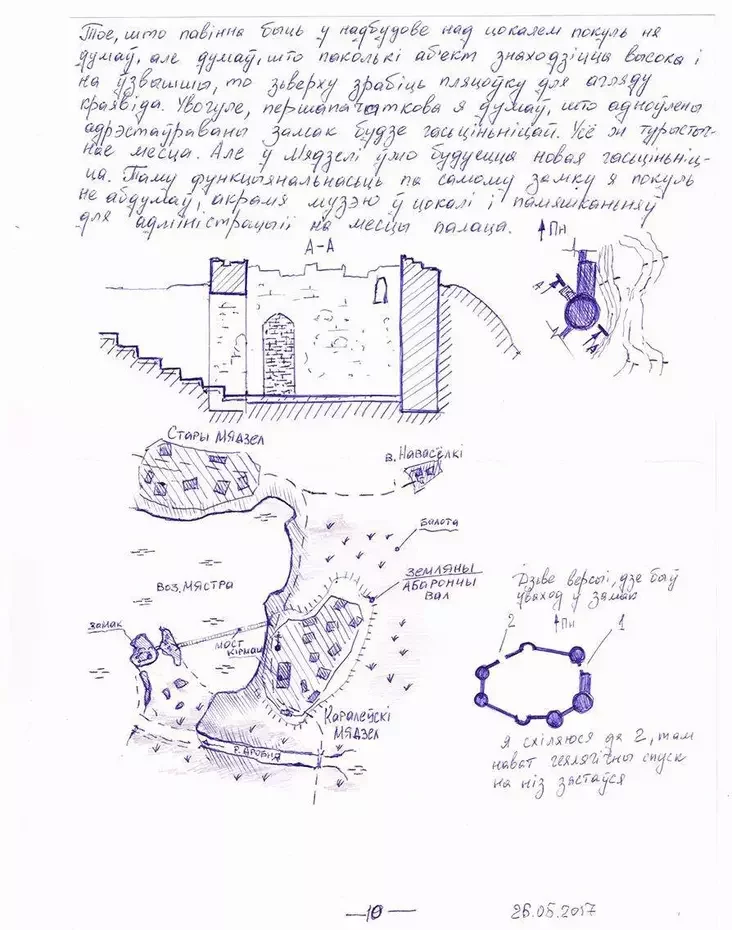 Тое, што павінна быць у надбудове над цокалем покуль не
думаў, але думаў, што паколькі аб'ект знаходзіцца высока і
на ўзвышшы, то зьверху зрабіць пляцоўку для агляду
краявіда. Увогуле, першапачаткова я думаў, што адноўлены
адрэстаўраваны замак будзе гасьцініцай. Усё ж турыстыч-
нае месца. Але ў Мядзелі ўжо будуецца новая гасьцініц-
ца. Таму функцыянальнасьць па самому замку я покуль
не абдумаў, акрамя музэю ў цокалі і памяшканьняў
для адміністрацыі на месцы палаца.
Пн
А-А
А
А
Стары Мядзел
в. Навасёлкі
балота
воз. Мястра
Земляны
абаронцы
вал
замак
мост
кірмаш
Каралеўскі
Мядзел
р. Дробня
Дзьве версыі, дзе быў
уваход у замак
Пн
2
1
Я схіляюся да 2, там
нават геялягічны спуск
на ніз застаўся
—10—
26.05.2017